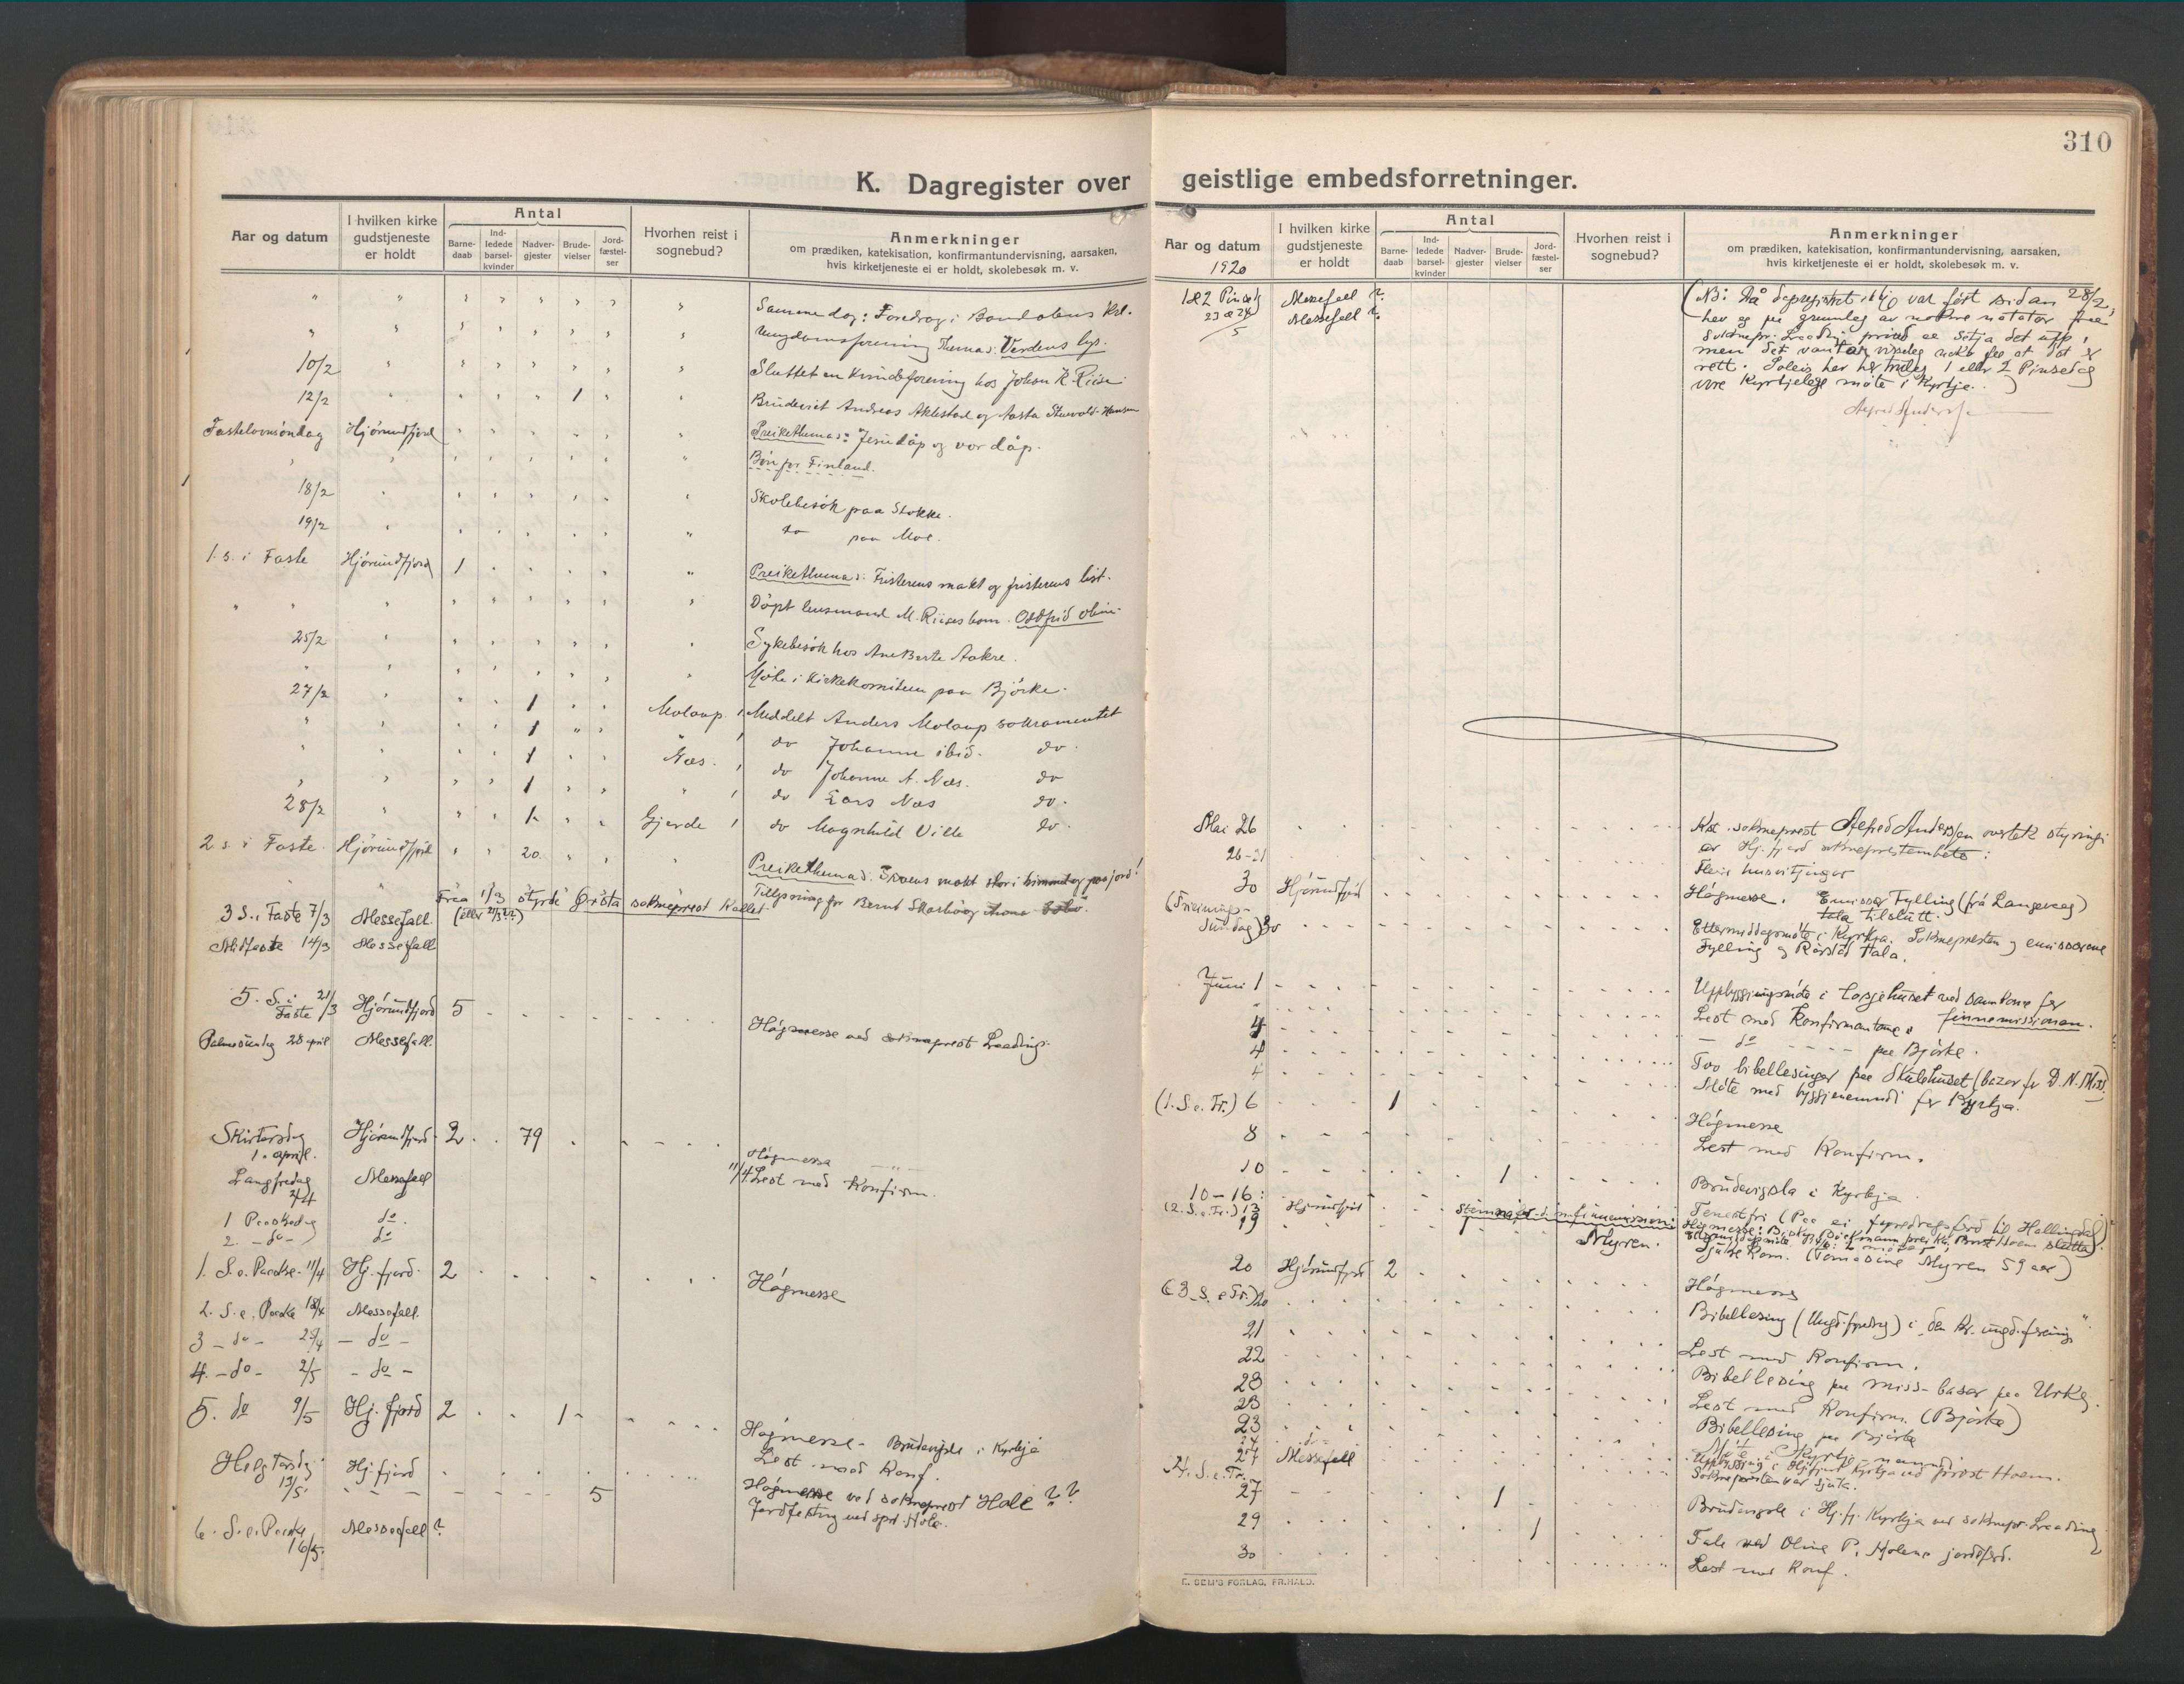 310
K. Dagregister over geistlige embedsforretninger.
Aar og datum
I hvilken kirke gudstjeneste er holdt
Antal
Barne-daab
Ind-ledede barsel-kvinder
Nadver-gjester
Brude-vielser
Jord-fæstel-ser
Hvorhen reist i sognebud?
Anmerkninger
om prædiken, katekisation, konfirmantundervisning, aarsaken,
hvis kirketjeneste ei er holdt, skolebesøk m. v.
Samme dag: Foredrag i Bondalens krl.
Ungdomsforening Thema: Verdens lys.
10/2 Sluttet en kvindeforening hos Johan K. Riise
12/2 1 Brudeviet Andreas Aklestad og Aasta Hansen
Fastelavnsöndag Hjörundfjord Preikethema: Jesu dåp og vor dåp.
Bön for Finland.
18/2 Skolebesök paa Stokke.
19/2 do paa Moe.
1. s. i Faste Hjörundfjord 1 Preikethema: Fristerens makt og fristerens list.
Döpt lensmand M. Riises barn. Oddfrid
25/2 Sykebesök hos Ane Berte Aakre.
Möte i Kirkekomiteen paa Björke.
27/2 1 Molaup Meddelt Anders Molaup sakramentet
1 do Johanne ibid. do.
1 Næs. do Johanne A. Næs. do
1 do Lars Næs do.
28/2 1 Gjerde do Magnhild Ville do.
2. s. i Faste Hjörundfjord 20 Preikethema: makt stor i himmel og paa jord!
Tillysning for Bernt
Fraa 1/3 styrde Örsta sokneprest Kallet
(eller 21/3??)
3 S. i Faste 7/3 Messefall.
Midfaste 14/3 Messefall
5. S. i Faste 21/3 Hjörundfjord 5 Högmesse ved sokneprest Leading.
Palmesundag 28 april Messefall.
Skirtorsdag 1. april. Hjörundfjord 2 79 Högmessa
Langfredag 2/4 Messefall 11/4 Lest med Konfirm.
1 Paaskedag do.
2. -do- do
1. S. e. Paaske 11/4 Hj. fjord 2 Högmesse
2. S. e. Paaske 18/4 Messefall.
3 - do - 25/4 - do -
4. - do - 2/5 - do -
5. do 9/5 Hj. fjord 2 1 Högmesse - Brudevigsle i Kyrkje
Lest med Konf.
Helg Torsdag 13/5 Hj. fjord Högmesse ved sokneprest Hole ??
5 Jordfesting ved spr. Hole.
6. S. e. Paaske 16/5. Messefall?
Aar og datum
1920
I hvilken kirke gudstjeneste er holdt
Antal
Barne-daab
Ind-ledede barsel-kvinder
Nadver-gjester
Brude-vielser
Jord-fæstel-ser
Hvorhen reist i sognebud?
Anmerkninger
om prædiken, katekisation, konfirmantundervisning, aarsaken,
hvis kirketjeneste ei er holdt, skolebesøk m. v.
1 & 2 Pinsed. Messefall ?
23 & 24/5 Messefall ?
(NB: Då dagregistret ikkje var fört sidan 28/2,
hev eg på grunnlag av nokre notatar fraa
soknepr. Leading prövd aa setja det upp,
men det vantar visseleg noko for at det er
rett. Soleis her 1 eller 2 Pinsedag
vore Kyrkjeleg möte i Kyrkja.)
Alfred Andersen
Mai 26 Kst. sokneprest Alfred Andersen overtok styringi
av Hj. fjord sokneprestembete:
26-31 Fleire husvitjingar
30 Hjörundfjord Högmesse. Emissær Fylling (frå Langevaag)
tala tilslutt.
(Treeinings-sundag) 30 Ettermiddagsmöte i Kyrkja. Soknepresten og emissærane
Fylling og Rörstad tala.
Juni 1 Uppbyggjingsmöte i losjehuset ved samkoma for
finnemissionen.
4 Lest med Konfirmantane
4 - do - paa Björke.
4 Tvo bibellesingar paa Skulehuset (bazar for D.N.Miss.)
Möte med byggjenemndi for Kyrkja.
(1. S. e. Tr.) 6 1 Högmesse
8 Lest med Konfirm.
10 1 Brudevigsla i Kyrkja.
10-16: Tenestfri (Paa ei foredragsferd til Hallingdal)
(2. S. e. Tr.) 13 Hjörundfjord
19 Myren. Sjuke Kom. (Tomasine Myren 59 aar)
20 Hjörundfjord 2 Högmesse
(3. S. e Tr.) 20 Bibellesing (Ungd. foredrag) i "den kr. ungd. foreining"
21 Lest med Konfirm.
22 Bibellesing paa miss-basar paa Urke.
23 Lest med Konfirm. (Björke)
23 Bibellesing paa Björke
23
24
27 Messefall Soknepresten var sjuk.
4. S. e. Tr.
27 1 Brudevigsle i Hj. fj. Kyrkja ved soknepr. Leading
29 1 Tale ved Oline P. Molens jordferd.
30 Lest med Konf.
E. SEM'S FORLAG, FR.HALD.